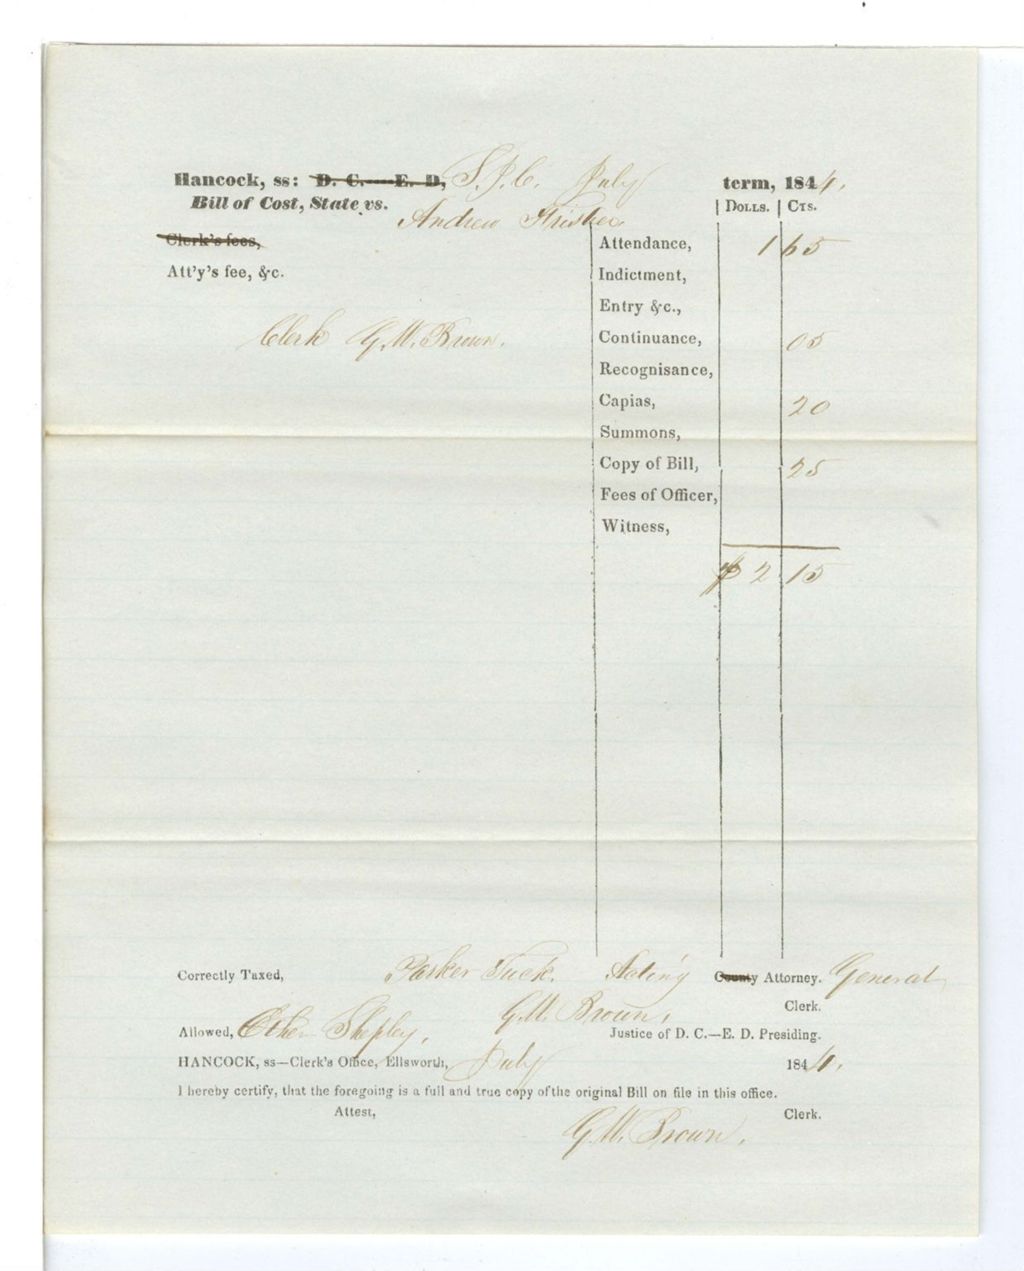 Hancock, ss: D. C.—E. D, S.J.C. July term, 1844.
Bill of Cost, State vs. Andrew DOLLS. CTS.
Clerk's fees, Attendance, 1 65
Att'y's fee, &c. Indictment,
Entry &c.,
Clerk G.M. Brown. Continuance, 05
Recognisance,
Capias, 20
Summons,
Copy of Bill, 25
Fees of Officer,
Witness,
$ 2 15
Correctly Taxed, Parker Tuck. Acting County Attorney. General
G.M. Brown, Clerk.
Allowed, Ether Shepley, Justice of D. C.—E. D. Presiding.
HANCOCK, ss—Clerk's Office, Ellsworth, July 1844.
I hereby certify, that the foregoing is a full and true copy of the original Bill on file in this office.
Attest, Clerk.
G.M. Brown.